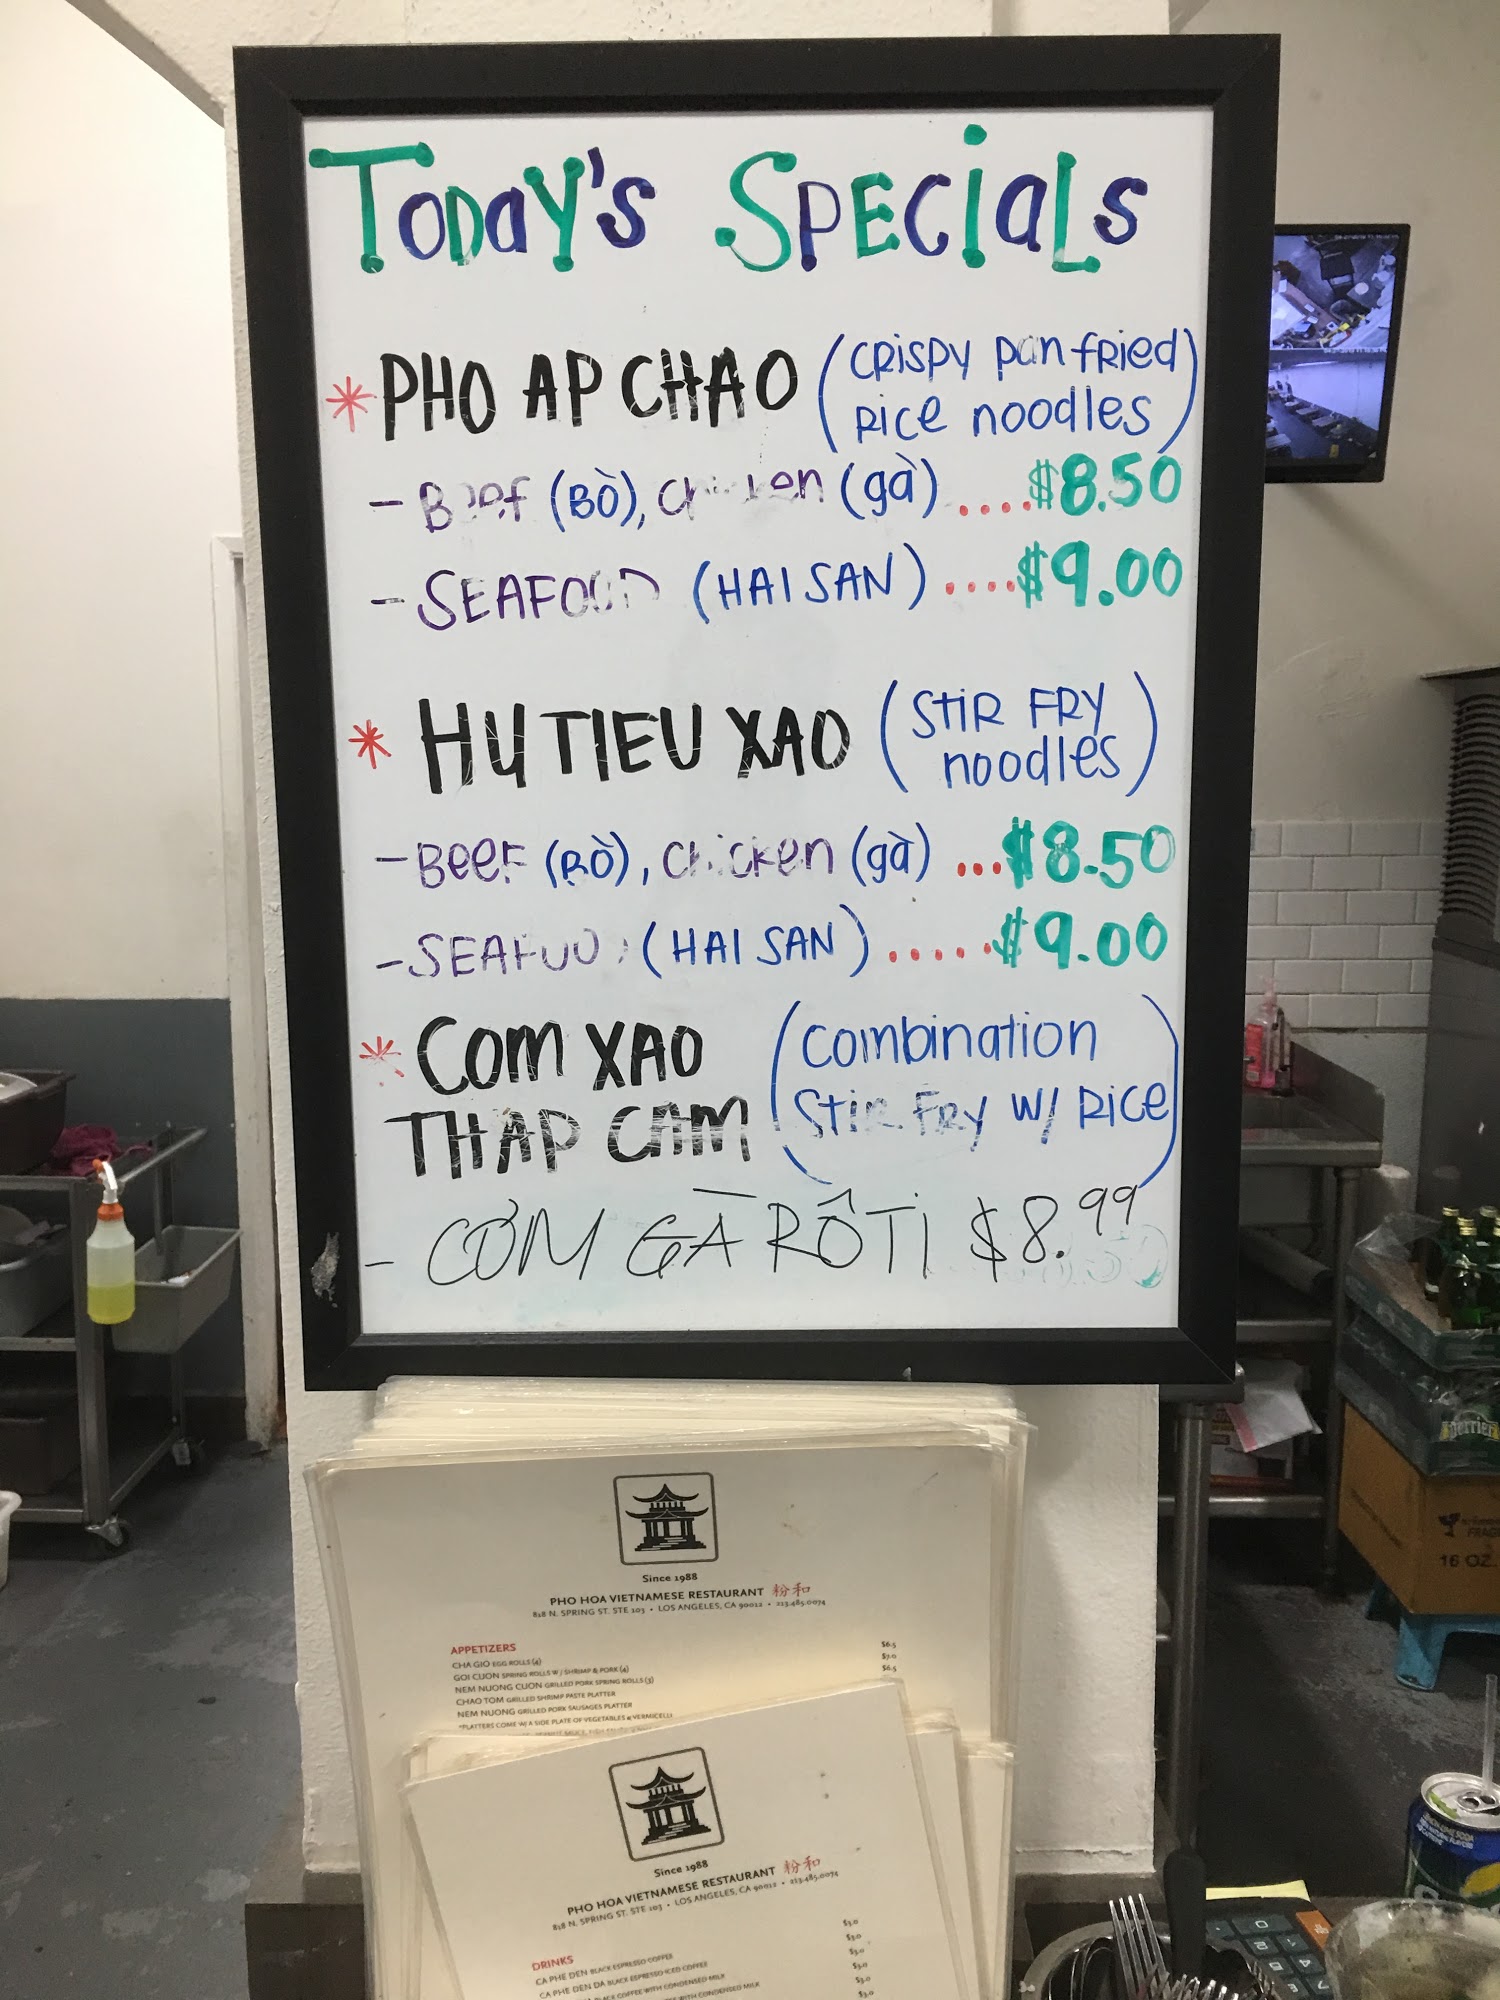 Today's Specials
* PHO AP CHAO (CRispy pan fRied
Rice noodles)
- Beef (Bò), chicken (gà) ....$8.50
- SEAFOOD (HAI SAN) ....$9.00
* HU TIEU XAO (StiR FRY
noodles)
- Beef (Bò), chicken (gà) ...$8.50
- SEAFOOD (HAI SAN) .....$9.00
* Com XAO (Combination
THAP CAM StiR FRy w/ Rice)
- CƠM GÀ RÔTI $8.99
Since 1988
PHO HOA VIETNAMESE RESTAURANT 粉和
818 N. SPRING ST. STE 103 • LOS ANGELES, CA 90012 • 213.485.0074
APPETIZERS
CHA GIO EGG ROLLS (4) $6.5
GOI CUON SPRING ROLLS W/ SHRIMP & PORK (4) $7.0
NEM NUONG CUON GRILLED PORK SPRING ROLLS (3) $6.5
CHAO TOM GRILLED SHRIMP PASTE PLATTER
NEM NUONG GRILLED PORK SAUSAGES PLATTER
*PLATTERS COME W/ A SIDE PLATE OF VEGETABLES & VERMICELLI
Since 1988
PHO HOA VIETNAMESE RESTAURANT 粉和
818 N. SPRING ST. STE 103 • LOS ANGELES, CA 90012 • 213.485.0074
DRINKS
CA PHE DEN BLACK ESPRESSO COFFEE $3.0
CA PHE DEN DA BLACK ESPRESSO ICED COFFEE $3.0
BLACK COFFEE WITH CONDENSED MILK $3.0
WITH CONDENSED MILK $3.0
$3.0
perrier
FRAG
16 OZ.